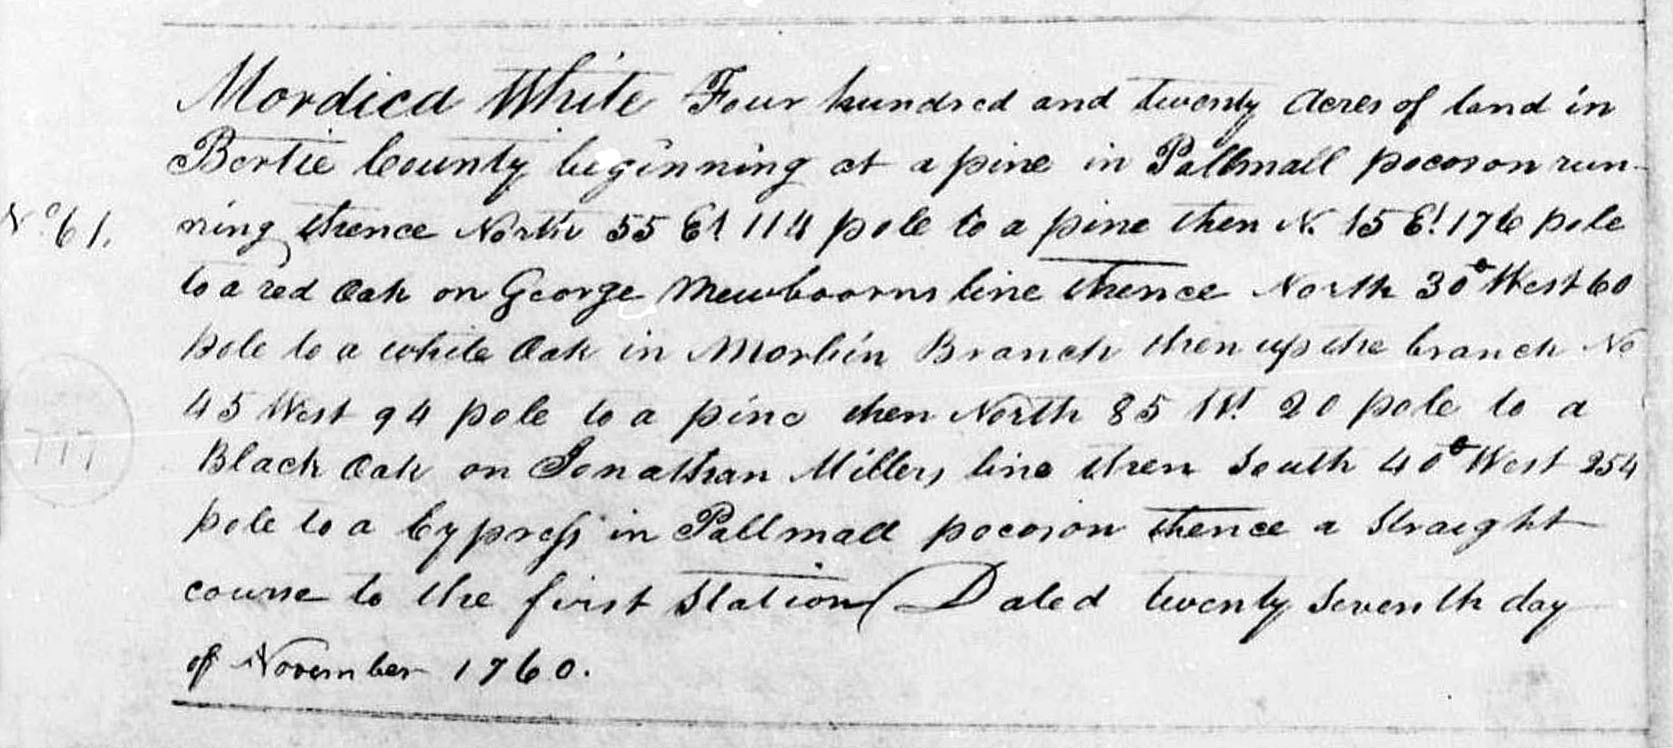 Mordica White Four hundred and twenty Acres of land in
Bertie County beginning at a pine in Pallmall pocoson run-
No. 61. ning thence North 55 Et. 114 pole to a pine then N. 15 Et. 176 pole
to a red Oak on George Mewboorns line thence North 30° West 60
pole to a white Oak in Morbin Branch then up the branch No
45 West 94 pole to a pine then North 85 Wt. 20 pole to a
Black Oak on Jonathan Millers line then South 40° West 254
pole to a Cypress in Pallmall pocoson thence a Straight
course to the first Station ( Dated twenty Seventh day
of November 1760.
777